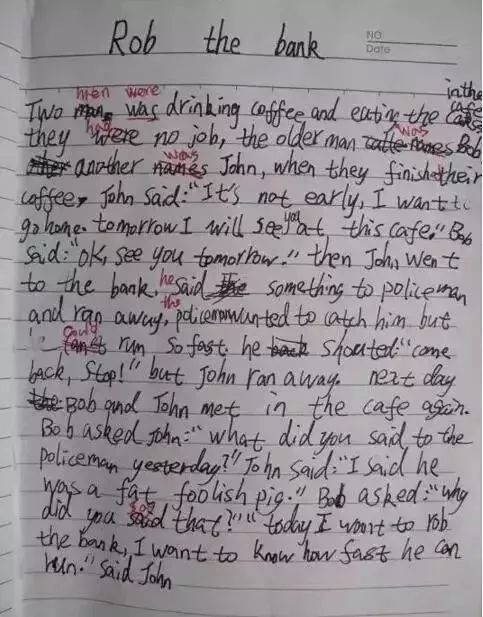 Rob the bank
NO
Date
men were in the
Two man was drinking coffee and eating the cakes cafe
had was
they were no job, the older man names Bob
was
another names John, when they finished their
coffee, John said:"It's not early, I want to
you
go home. tomorrow I will see at this cafe." Bob
said:"OK, see you tomorrow." then John went
he
to the bank, said the something to policeman
the
and ran away, policeman wanted to catch him but
could
run so fast. he back shouted:"come
back, Stop!" but John ran away. next day
the Bob and John met in the cafe again.
Bob asked John:"what did you said to the
policeman yesterday?" John said:"I said he
was a fat foolish pig." Bob asked:"why
say
did you said that?" "today I want to rob
the bank, I want to know how fast he can
run." said John